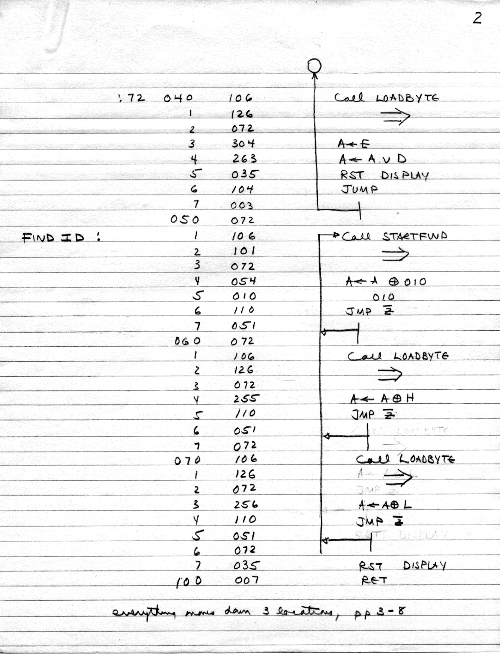 2
:72 040 106 Call LOADBYTE
1 126
2 072
3 304 A←E
4 263 A←A∨D
5 035 RST DISPLAY
6 104 JUMP
7 003
050 072
FIND ID: 1 106 Call STARTFWD
2 101
3 072
4 054 A←A⊕010
5 010 010
6 110 JMP Z̅
7 051
060 072
1 106 Call LOADBYTE
2 126
3 072
4 255 A←A⊕H
5 110 JMP Z̅
6 051
7 072
070 106 Call LOADBYTE
1 126
2 072
3 256 A←A⊕L
4 110 JMP Z̅
5 051
6 072
7 035 RST DISPLAY
100 007 RET
everything moves down 3 locations, pp 3-8